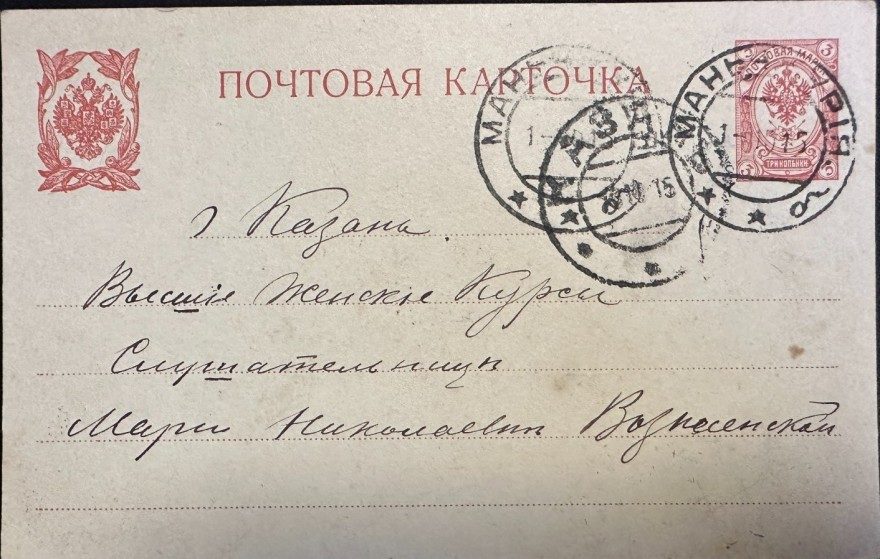 ПОЧТОВАЯ КАРТОЧКА
3 3
ПОЧТОВАЯ МАРКА
ТРИ КОПѢЙКИ
1 5 15
КАЗАНЬ
15
г Казань
Высшіе Женскіе Курсы
Слушательницѣ
Маріи Николаевнѣ Вознесенской